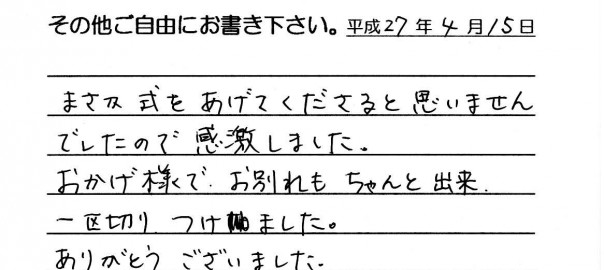 その他ご自由にお書き下さい。平成27年4月15日
まさか式をあげてくださると思いません
でしたので感激しました。
おかげ様で、お別れもちゃんと出来、
一区切りつけました。
ありがとうございました。